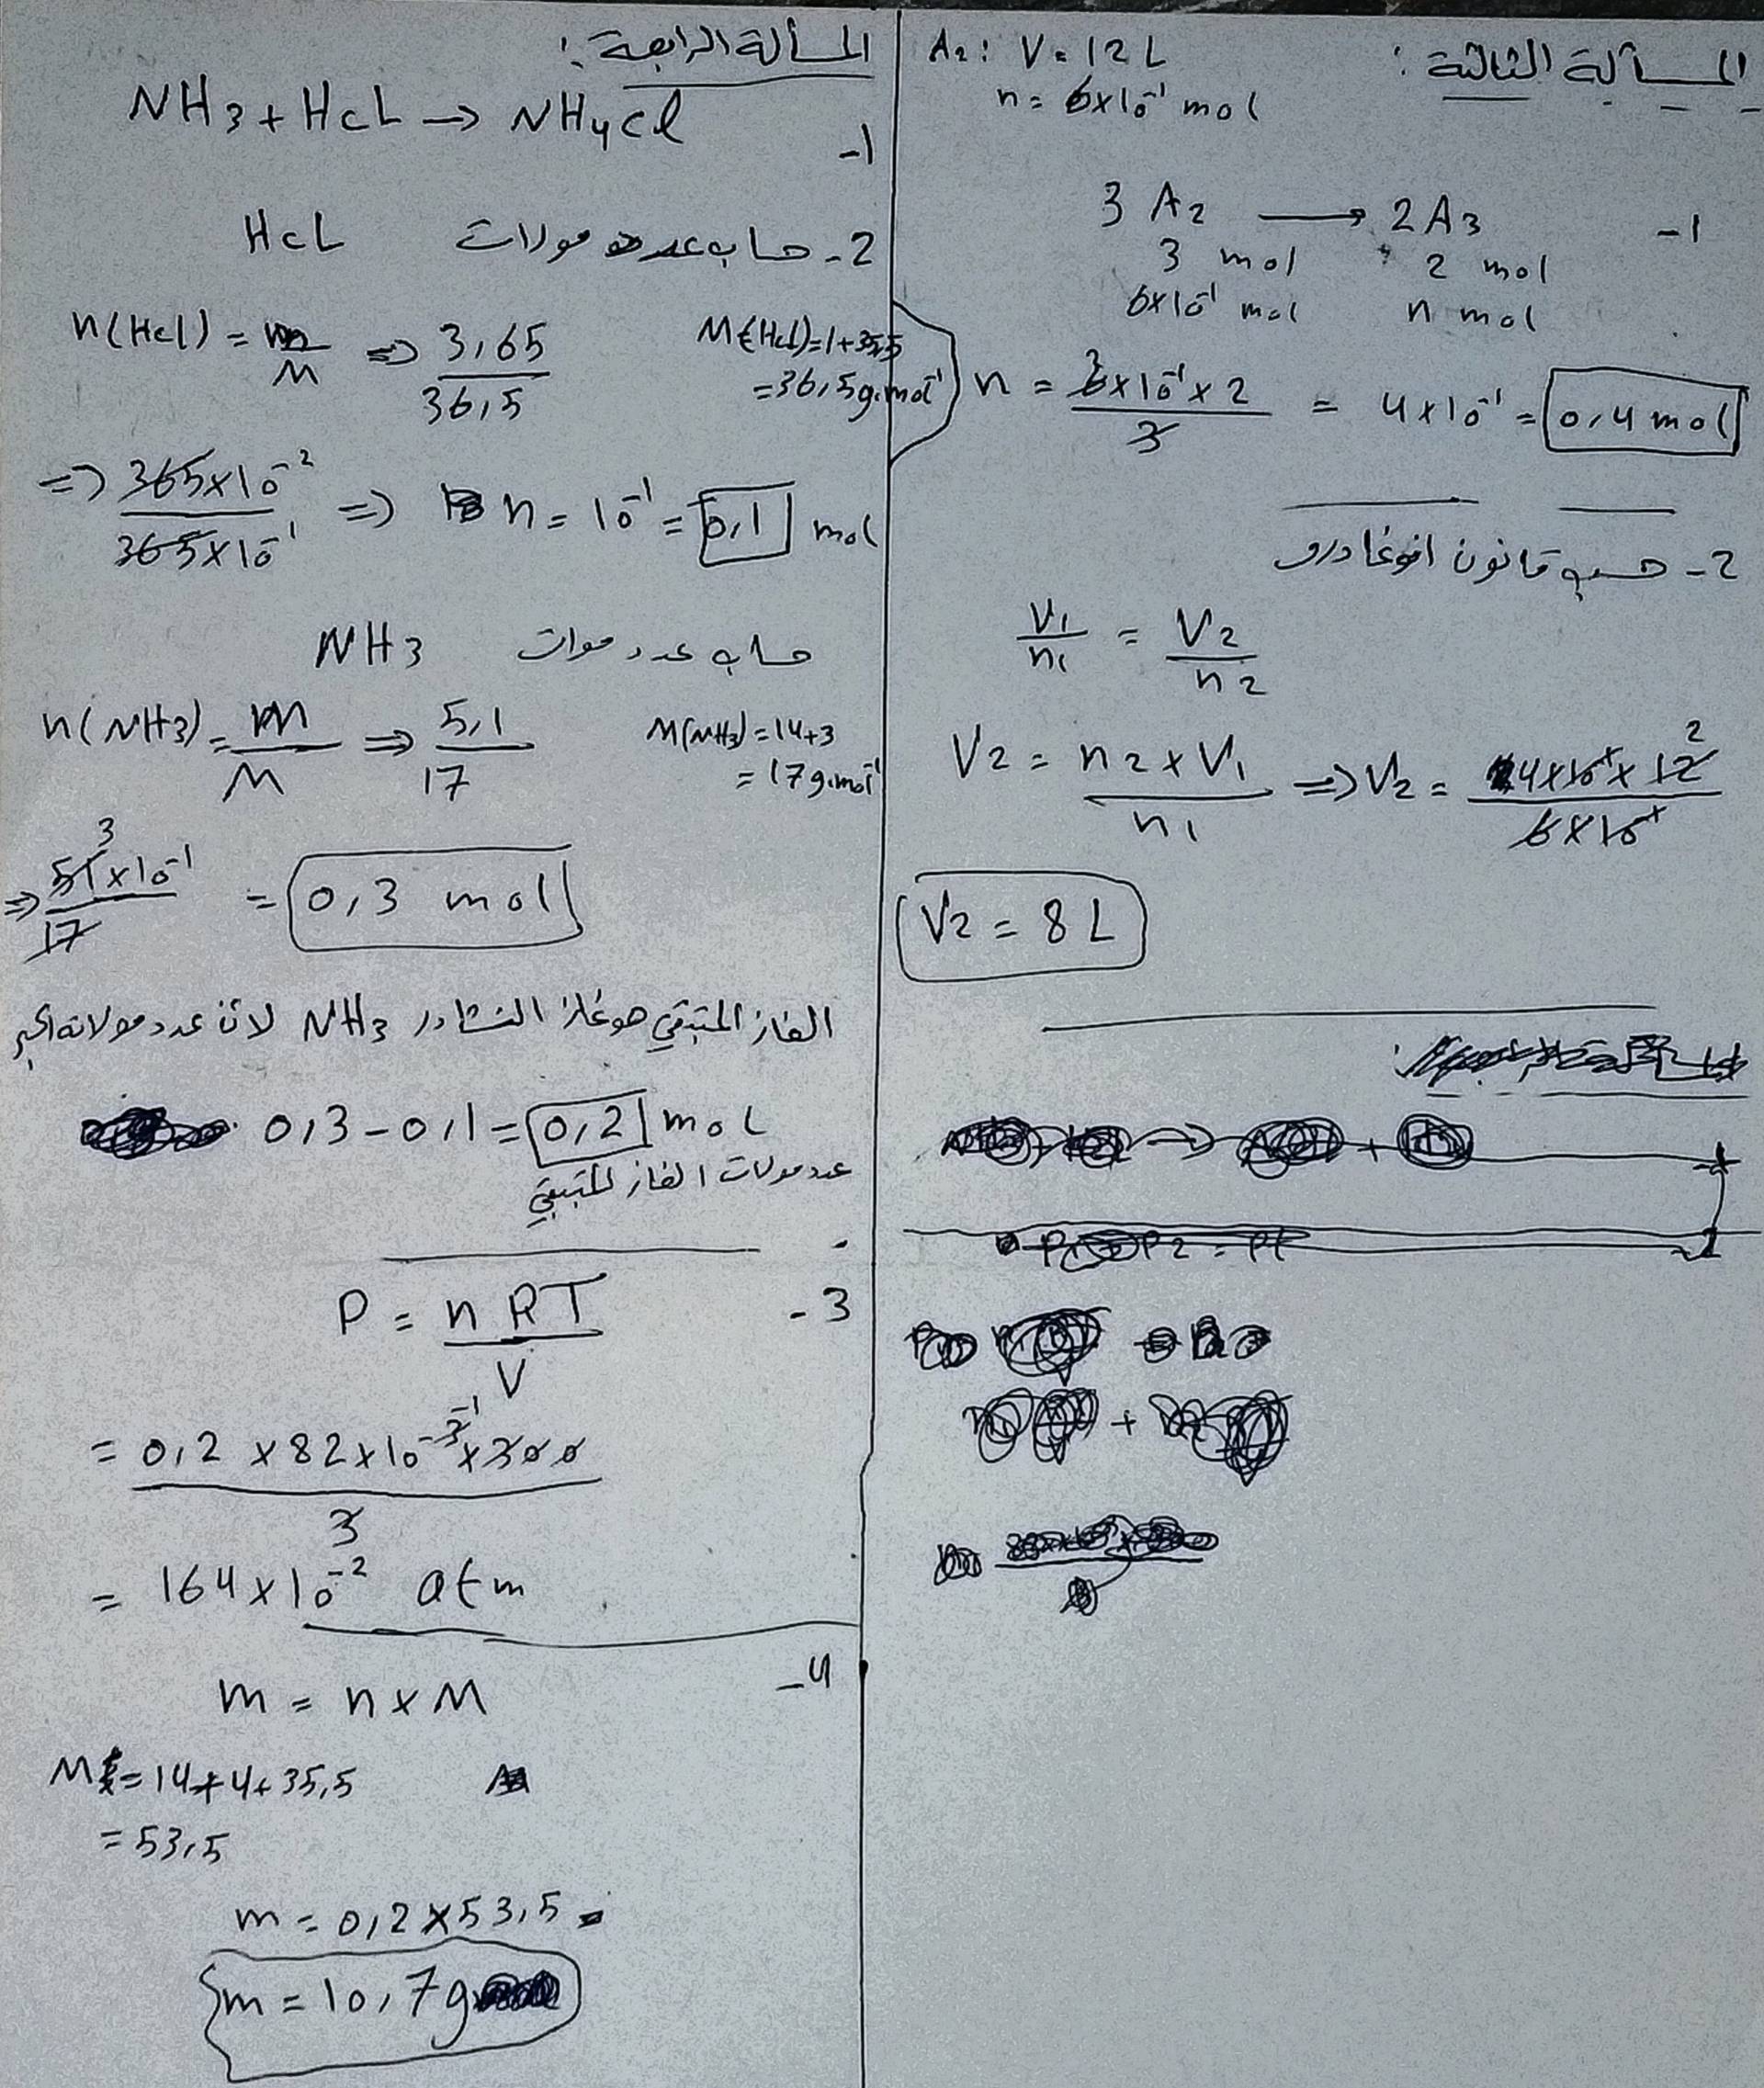 المسألة الثالثة :
A2 : V = 12 L
n = 6x10⁻¹ mol
-1
3 A2 → 2 A3
3 mol 2 mol
6x10⁻¹ mol n mol
n = 6x10⁻¹ x 2 / 3 = 4x10⁻¹ = 0,4 mol
2- حسب قانون افوغادرو
V1/n1 = V2/n2
V2 = n2 x V1 / n1 => V2 = 4x10⁻¹ x 12 / 6x10⁻¹
2
V2 = 8 L
المسألة الرابعة :
NH3 + HcL → NH4Cl
-1
2- حساب عدد مولات HcL
n(Hcl) = m/M => 3,65/36,5
M(HcL) = 1+35,5
= 36,5 g.mol⁻¹
=> 365x10⁻² / 365x10⁻¹ => n = 10⁻¹ = 0,1 mol
حساب عدد موات NH3
n(NH3) = m/M => 5,1/17
M(NH3) = 14+3
= 17 g.mol⁻¹
3
=> 51x10⁻¹ / 17 = 0,3 mol
الغاز المتبقي هو غاز النشادر NH3 لان عدد مولاته اكبر
0,3 - 0,1 = 0,2 mol
عدد مولات الغاز المتبقي
-3
P = n RT / V
= 0,2 x 82x10⁻³ x 300 / 3
-1
= 164x10⁻² atm
-4
m = n x M
M = 14+4+35,5
= 53,5
m = 0,2 x 53,5
m = 10,7 g